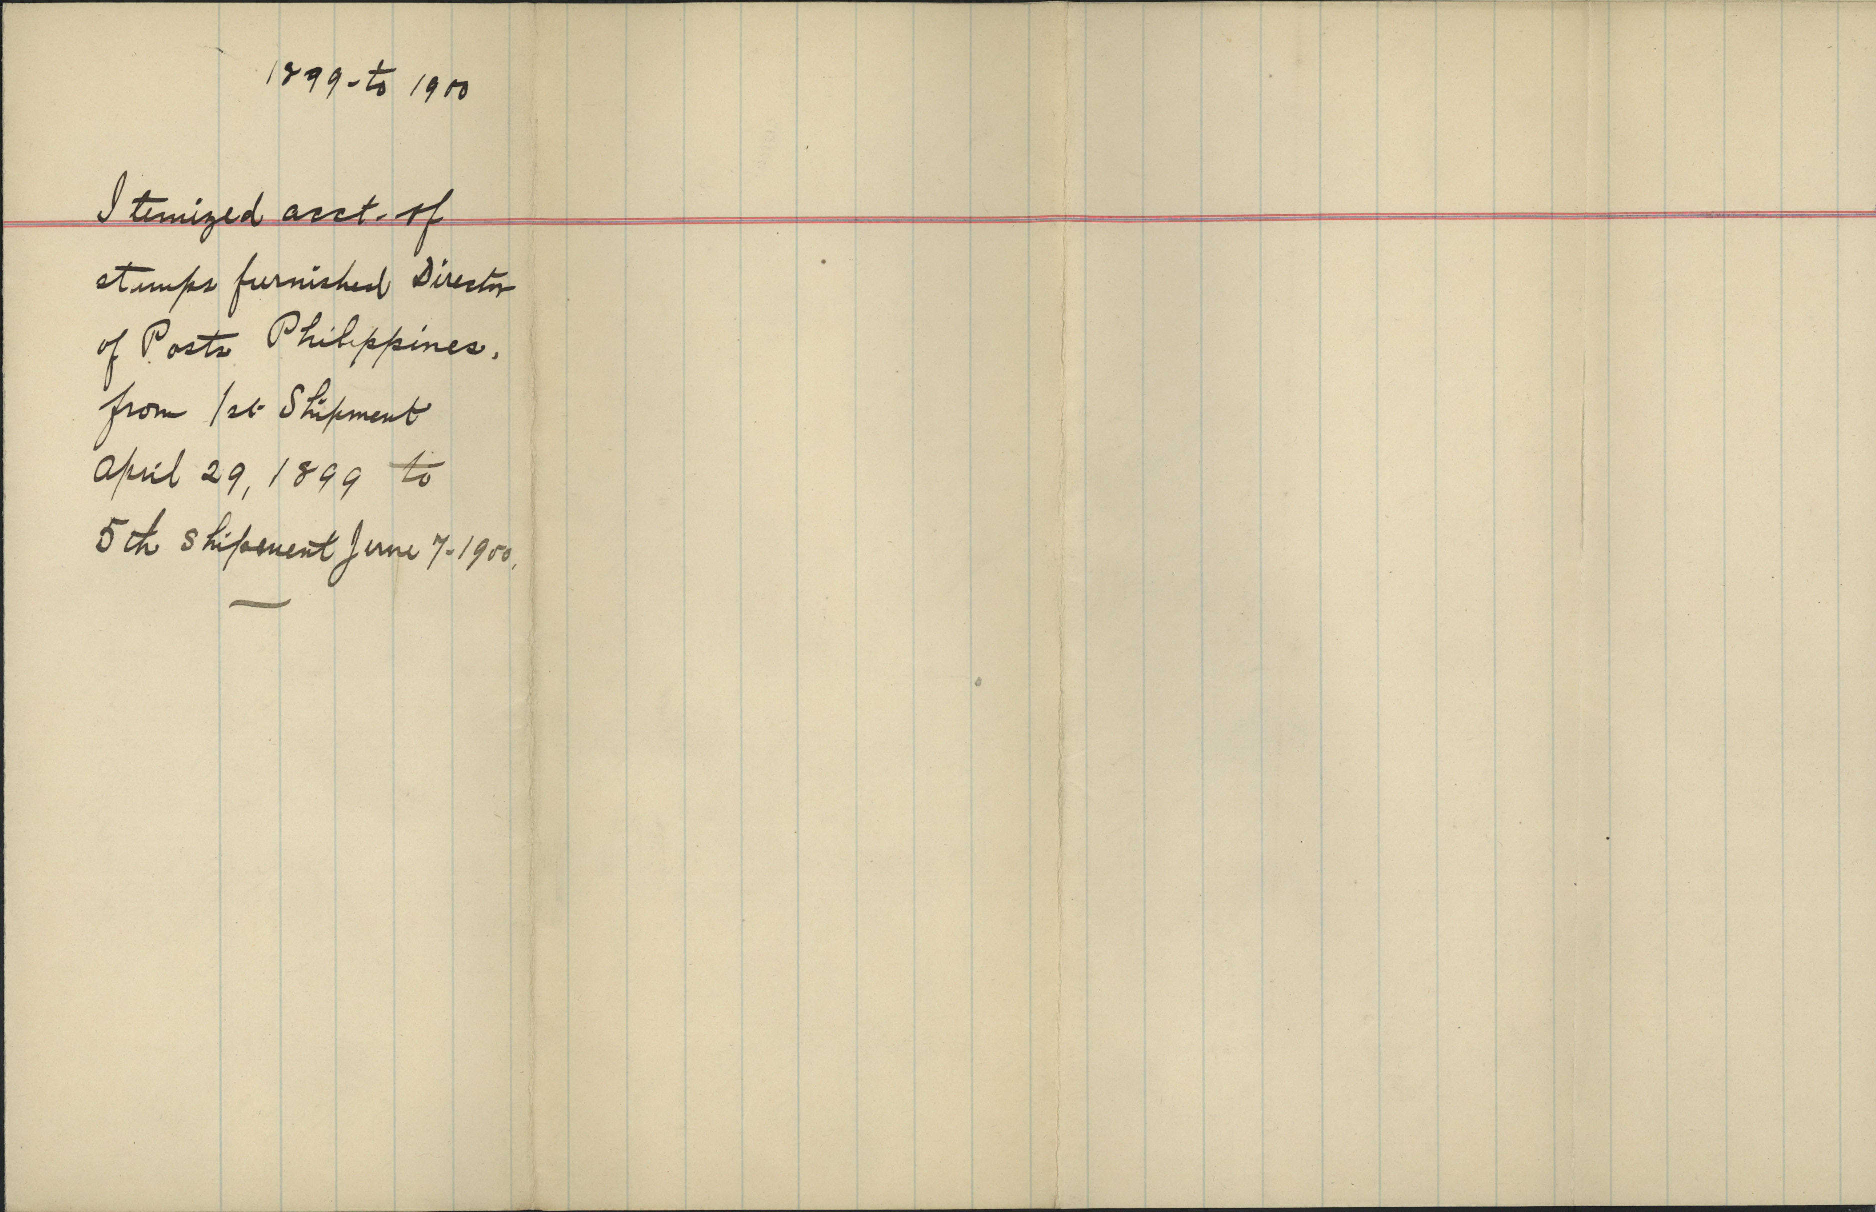 1899-to 1900
Itemized acct. of
stamps furnished Director
of Posts Philippines.
from 1st Shipment
April 29, 1899 to
5th shipment June 7-1900.